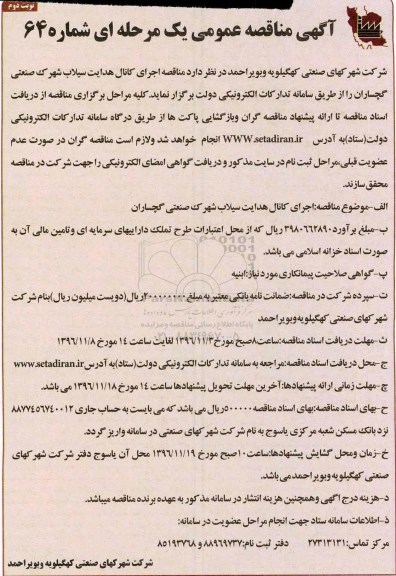 نوبت دوم
آگهی مناقصه عمومی یک مرحله ای شماره ۶۴
شرکت شهرکهای صنعتی کهگیلویه وبویراحمد در نظر دارد مناقصه اجرای کانال هدایت سیلاب شهرک صنعتی
گچساران را از طریق سامانه تدارکات الکترونیکی دولت برگزار نماید.کلیه مراحل برگزاری مناقصه از دریافت
اسناد مناقصه تا ارائه پیشنهاد مناقصه گران وبازگشایی پاکت ها از طریق درگاه سامانه تدارکات الکترونیکی
دولت(ستاد)به آدرس WWW.setadiran.ir انجام خواهد شد ولازم است مناقصه گران در صورت عدم
عضویت قبلی،مراحل ثبت نام در سایت مذکور و دریافت گواهی امضای الکترونیکی را جهت شرکت در مناقصه
محقق سازند.
الف-موضوع مناقصه:اجرای کانال هدایت سیلاب شهرک صنعتی گچساران
ب-مبلغ برآورد۳۹۸۰۶۶۲۸۹۰ ریال که از محل اعتبارات طرح تملک داراییهای سرمایه ای وتامین مالی آن به
صورت اسناد خزانه اسلامی می باشد.
پ-گواهی صلاحیت پیمانکاری مورد نیاز:ابنیه
ت-سپرده شرکت در مناقصه:ضمانت نامه بانکی معتبر به مبلغ۲۰۰۰۰۰۰۰۰ریال(دویست میلیون ریال)بنام شرکت
شهرکهای صنعتی کهگیلویه وبویراحمد
ث-مهلت دریافت اسناد مناقصه:ساعت۸صبح مورخ۱۳۹۶/۱۱/۳ لغایت ساعت ۱۴ مورخ ۱۳۹۶/۱۱/۸
ج-محل دریافت اسناد مناقصه:مراجعه به سامانه تدارکات الکترونیکی دولت(ستاد)به آدرسwww.setadiran.ir
چ-مهلت زمانی ارائه پیشنهادها:آخرین مهلت تحویل پیشنهادها ساعت ۱۴ مورخ ۱۳۹۶/۱۱/۱۸ می باشد.
ح-بهای اسناد مناقصه:بهای اسناد مناقصه۵۰۰۰۰۰ریال می باشد که می بایست به حساب جاری ۸۸۷۷۴۵۶۷۴۰۰۱۲
نزد بانک مسکن شعبه مرکزی یاسوج به نام شرکت شهرکهای صنعتی در سامانه واریز گردد.
خ-زمان ومحل گشایش پیشنهادها:ساعت۱۰صبح مورخ ۱۳۹۶/۱۱/۱۹ محل آن یاسوج دفتر شرکت شهرکهای
صنعتی کهگیلویه وبویراحمد می باشد.
د-هزینه درج آگهی وهمچنین هزینه انتشار در سامانه مذکور به عهده برنده مناقصه میباشد.
ذ-اطلاعات سامانه ستاد جهت انجام مراحل عضویت در سامانه:
مرکز تماس:۲۷۳۱۳۱۳۱ دفتر ثبت نام:۸۸۹۶۹۷۳۷ و ۸۵۱۹۳۷۶۸
شرکت شهرکهای صنعتی کهگیلویه وبویراحمد